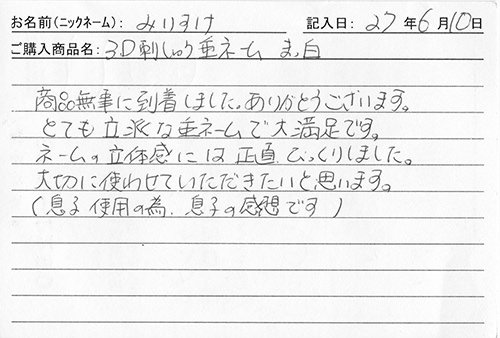 お名前(ニックネーム): みりすけ 記入日: 27年6月10日
ご購入商品名: 3D刺しゅう重ネーム まっ白
商品無事に到着しました。ありがとうございます。
とても立派な重ネームで大満足です。
ネームの立体感には正直びっくりしました。
大切に使わせていただきたいと思います。
(息子使用の為、息子の感想です)